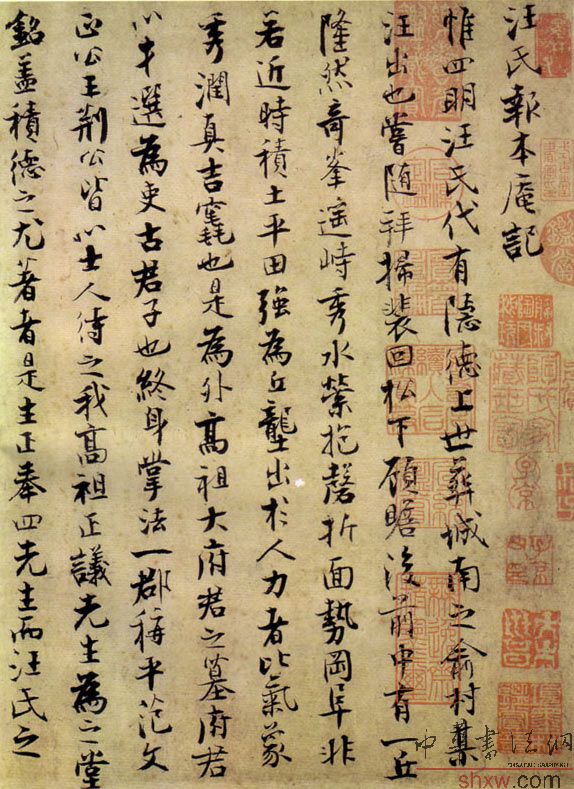 汪氏報本庵記
惟四明汪氏代有隱德上世葬城南之俞村某
汪出也嘗随拜掃裴回松下顧瞻後前中有一丘
隆然奇峯遥峙秀水縈抱磬折面勢岡阜非
若近時積土平田強為丘壟出於人力者比氣象
秀潤真吉竁也是為外高祖大府君之墓府君
以才選為吏古君子也終身掌法一郡稱平范文
正公王荆公皆以士人待之我高祖正議先生為之堂
銘蓋積德之尤著者是生正奉四先生而汪氏之
中华书法網
shxw.com